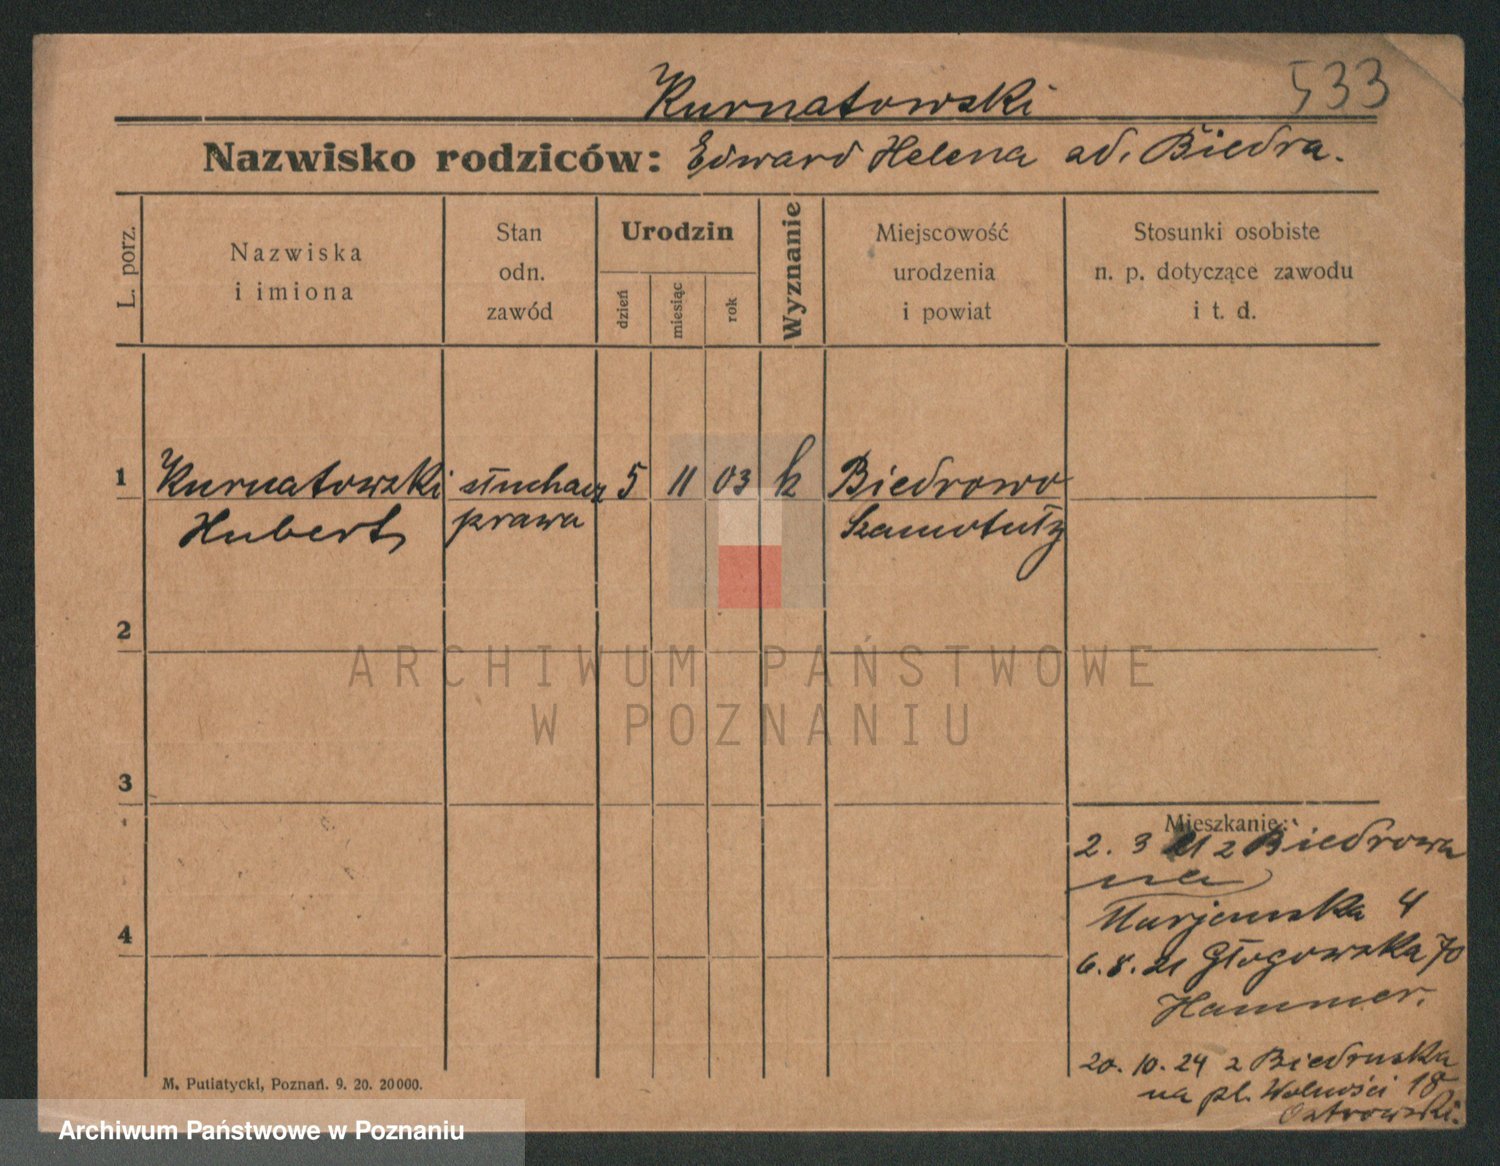 533
Kurnatowski
Nazwisko rodziców: Edward Helena ad. Biedra.
L. porz.
Nazwiska
i imiona
Stan
odn.
zawód
Urodzin
dzień
miesiąc
rok
Wyznanie
Miejscowość
urodzenia
i powiat
Stosunki osobiste
n. p. dotyczące zawodu
i t. d.
1 Kurnatowski słuchacz 5 11 03 k Biedrowo
Hubert prawa Szamotuły
2
3
4
Mieszkanie:
2. 3 21 z Biedrowa
na
4
6. 8. 21 Głogowska 70
Hammer.
20. 10. 24 z Biedruska
na pl. Wolności 18
Ostrowski.
M. Putiatycki, Poznań. 9. 20. 20000.
ARCHIWUM PAŃSTWOWE
W POZNANIU
Archiwum Państwowe w Poznaniu